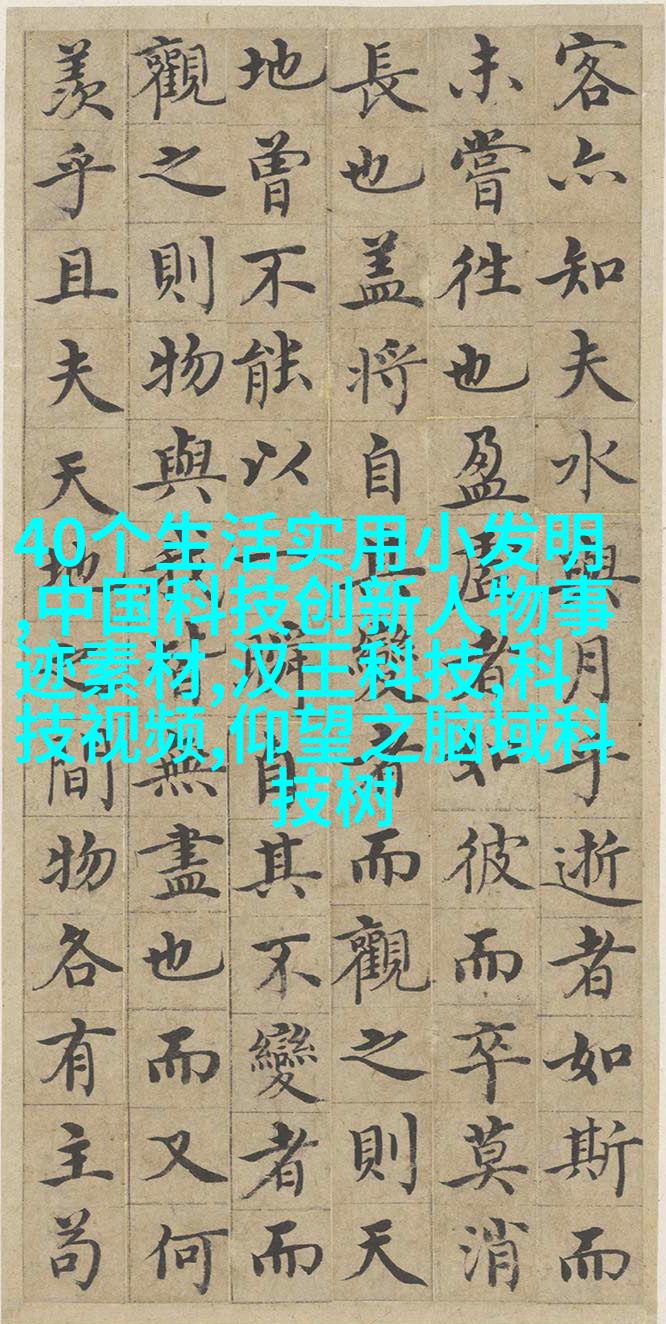 客亦知夫水與月乎逝者如斯而
未嘗往也盈虛者如彼而卒莫消
長也盖將自其變者而觀之則天
地曾不能以一瞬自其不變者而
觀之則物與我皆無盡也而又何
羨乎且夫天地之間物各有主苟
40个生活实用小发明
,中国科技创新人物事
迹素材,汉王科技,科
技视频,仰望之脑域科
技树